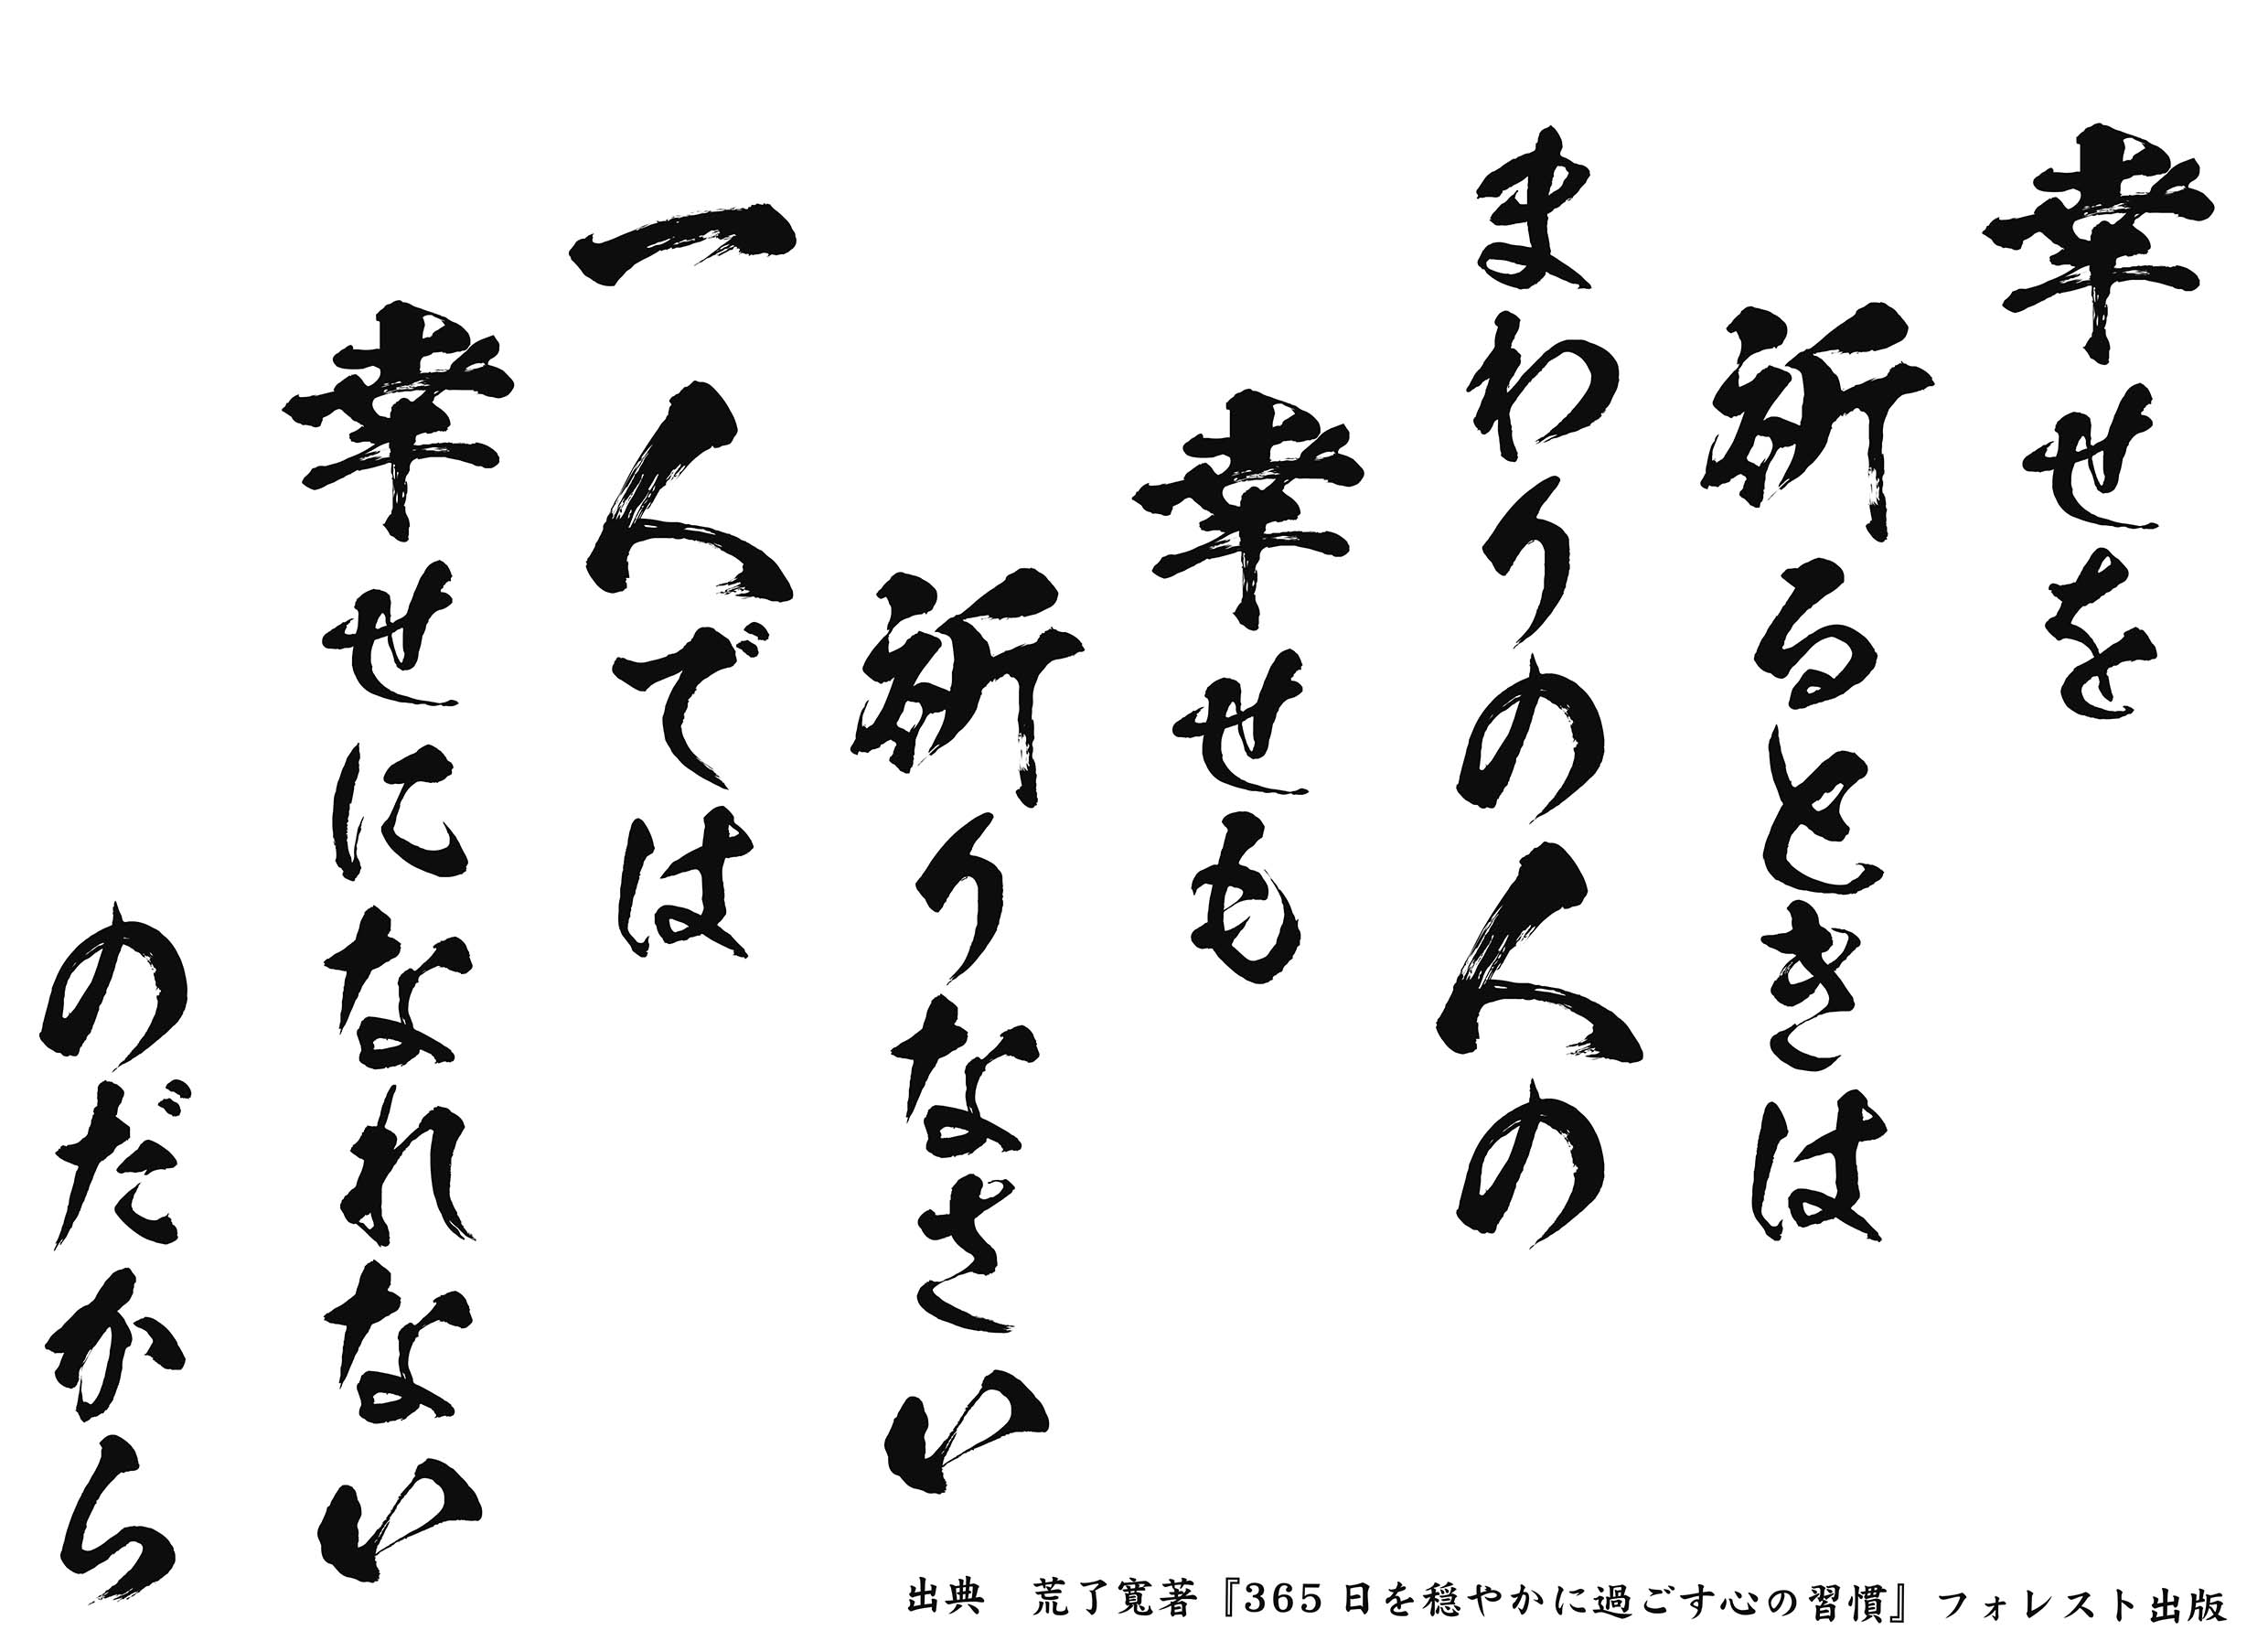 幸せを
祈るときは
まわりの人の
幸せも
祈りなさい
一人では
幸せになれない
のだから
出典　荒了寛著『365日を穏やかに過ごす心の習慣』フォレスト出版